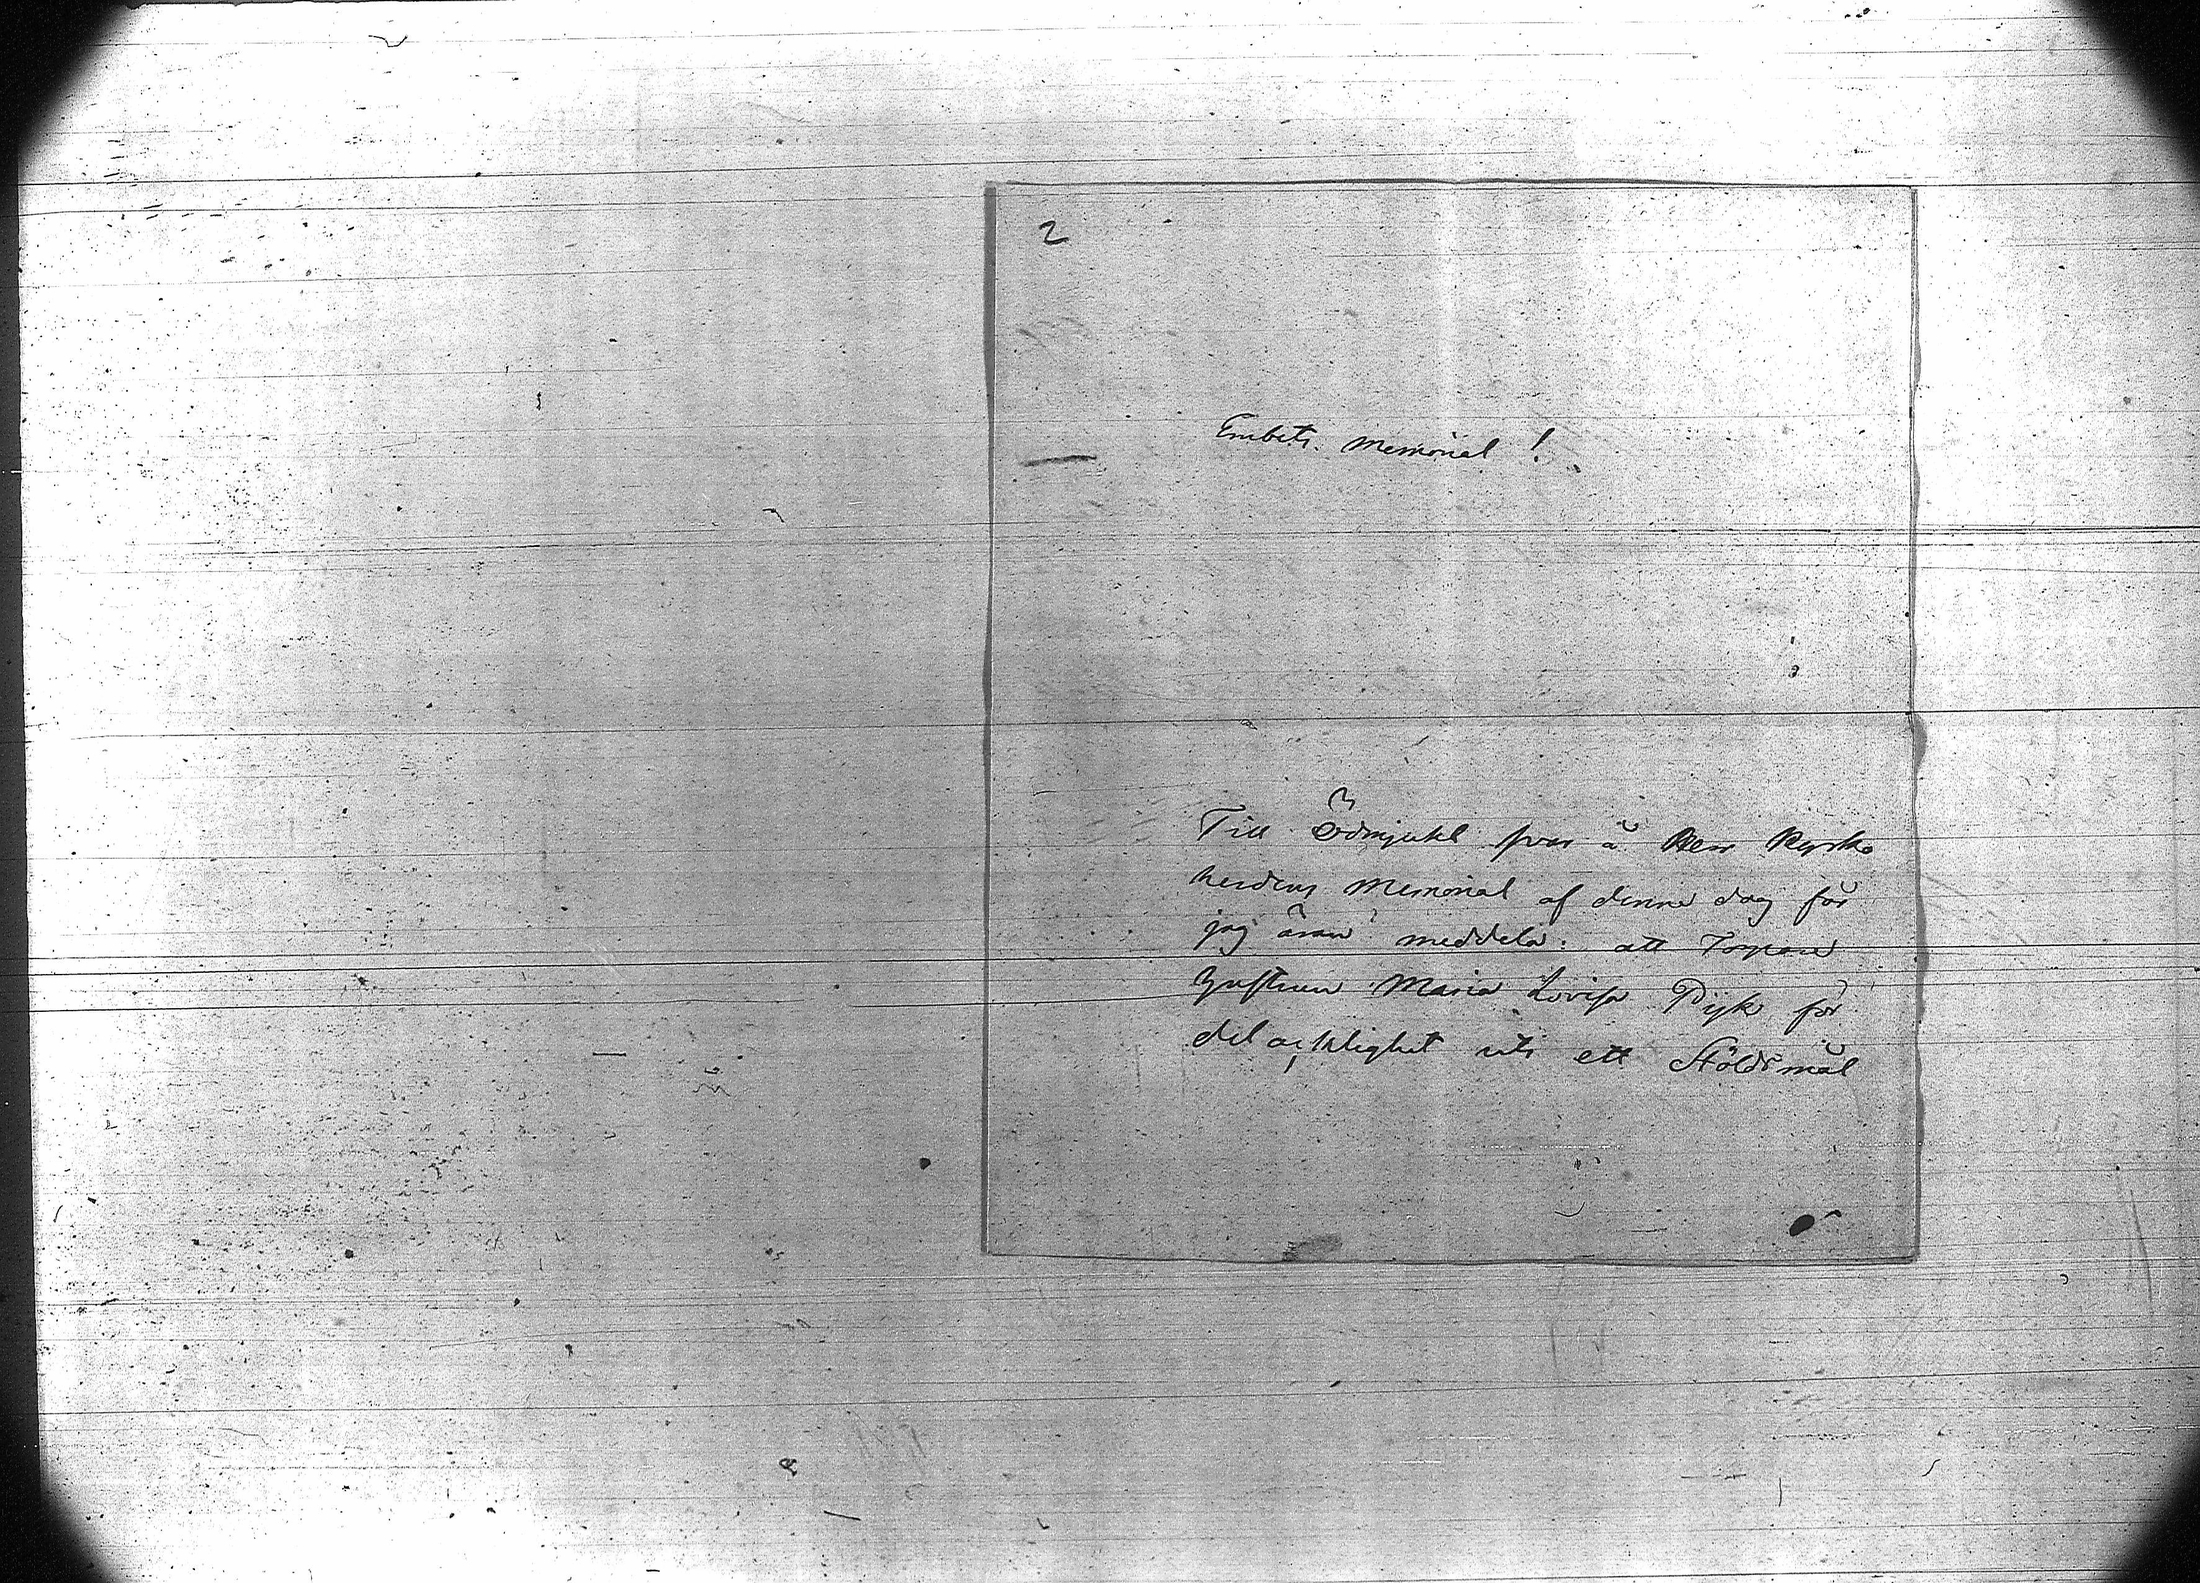 2
Embets Memorial!
Till Ödmjukt svar å Herr Kyrko
herdens Memorial af denne dag får
jag äran meddela: att Torpare
Hustrun Maria Lovisa Dyk för
delacktighet uti ett Stöldsmål